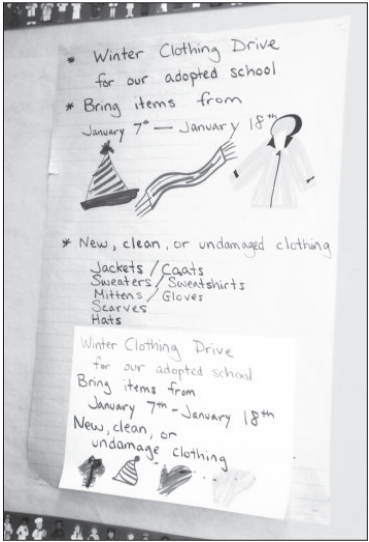 * Winter Clothing Drive
for our adopted school
* Bring items from
January 7th — January 18th
* New, clean, or undamaged clothing
Jackets / Coats
Sweaters / Sweatshirts
Mittens / Gloves
Scarves
Hats
Winter Clothing Drive
for our adopted school
Bring items from
January 7th - January 18th
New, clean, or
undamage clothing